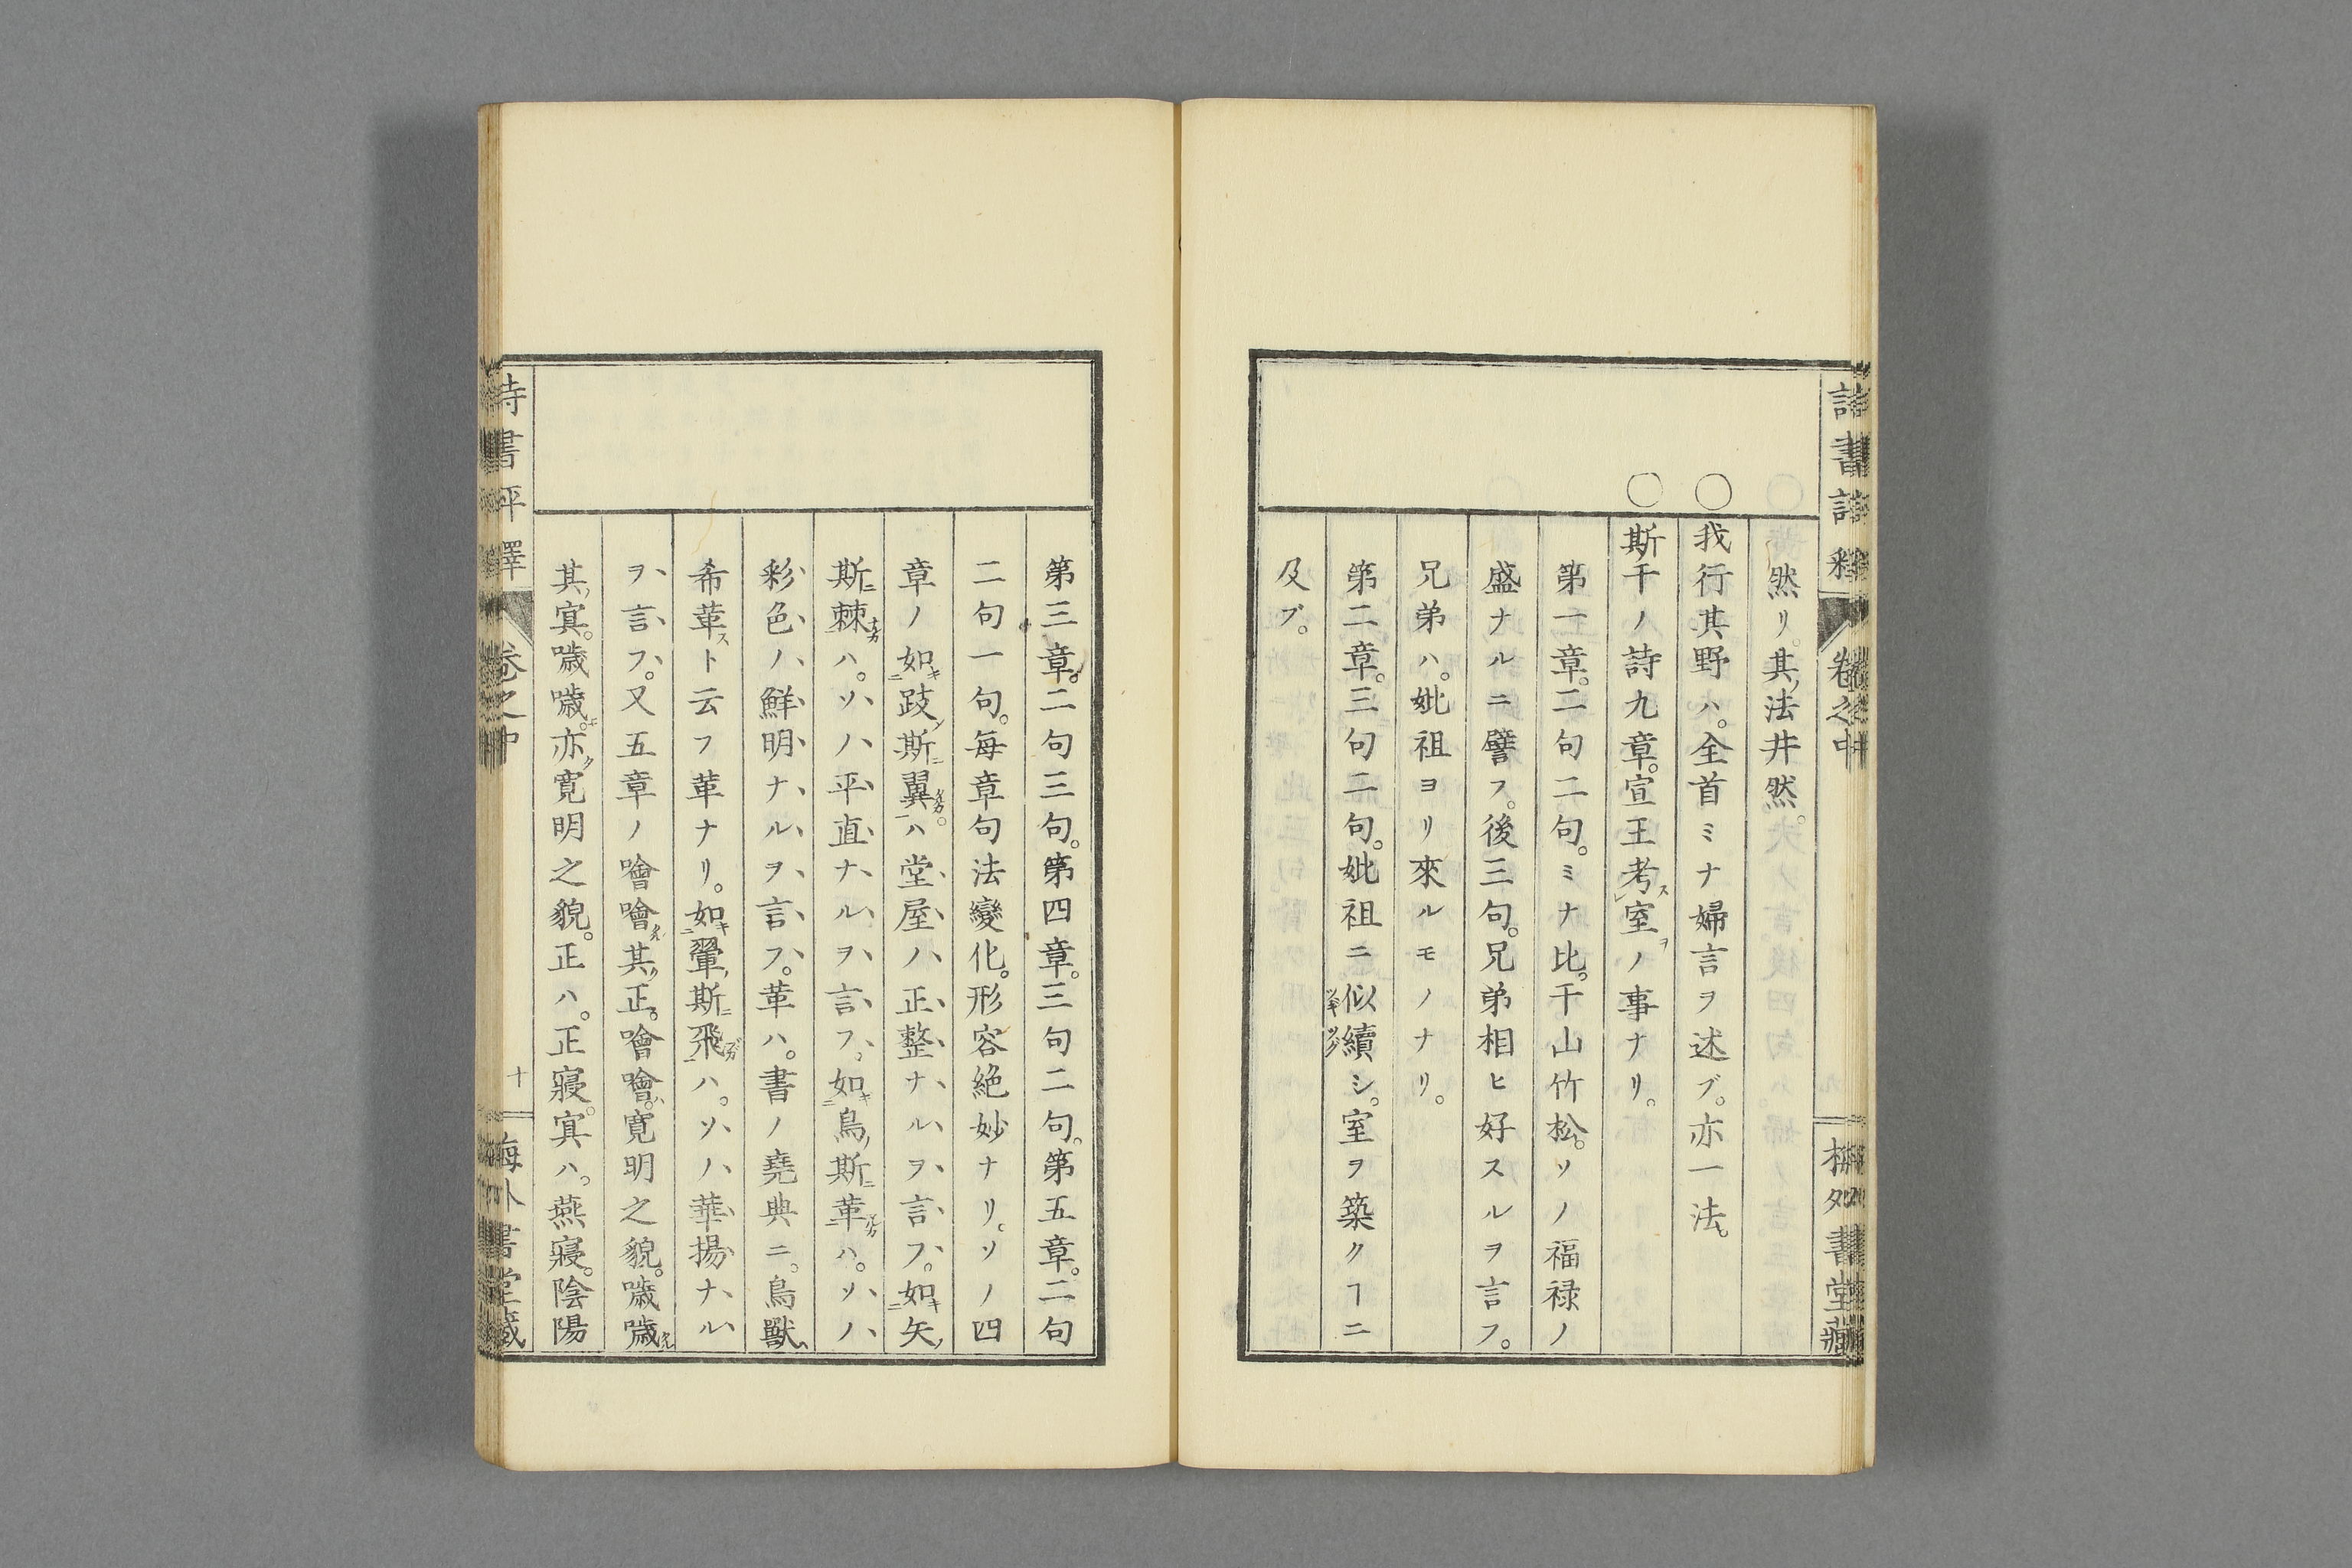 然リ。其ノ法井然。
○我行其野ハ。全首ミナ婦言ヲ述ブ。亦一法。
○斯干ノ詩九章。宣王考スレ室ヲノ事ナリ。
第一章。二句二句。ミナ比。干山竹松。ソノ福禄ノ
盛ナルニ譬フ。後三句。兄弟相ヒ好スルヲ言フ。
兄弟ハ。妣祖ヨリ來ルモノナリ。
第二章。三句二句。妣祖ニ似續シ。室ヲ築クヿニ
及ブ。
第三章。二句三句。第四章。三句二句。第五章。二句
二句一句。每章句法變化。形容絶妙ナリ。ソノ四
章ノ如キ二跂ノ斯ニ翼一ハ堂屋ノ正整ナルヲ言フ。如キ二矢ノ
斯ニ棘ハ。ソノ平直ナルヲ言フ。如キ二鳥ノ斯ニ革一ハ。ソノ
彩色ノ鮮明ナルヲ言フ。革ハ。書ノ堯典ニ。鳥獸
希革スト云フ革ナリ。如キ二翬ノ斯ニ飛一ハ。ソノ華揚ナル
ヲ言フ。又五章ノ噲噲其ノ正。噲噲ハ。寛明之貌。噦噦
其ノ冥。噦噦。亦ク寛明之貌。正ハ。正寢。冥ハ。燕寢。陰陽
詩書評釋
卷之中
十
梅外書堂藏